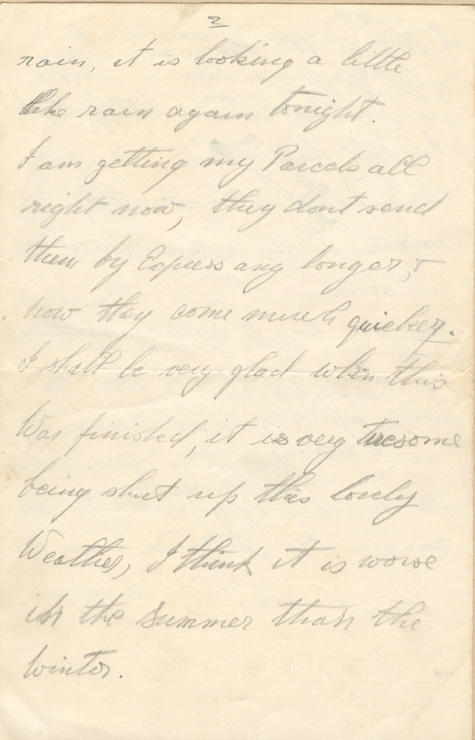 2
rain, it is looking a little
like rain again tonight.
I am getting my Parcels all
right now, they dont send
them by Express any longer, &
now they come much quicker.
I shall be very glad when this
War finished, it is very tiresome
being shut up this lovely
Weather, I think it is worse
in the Summer than the
Winter.